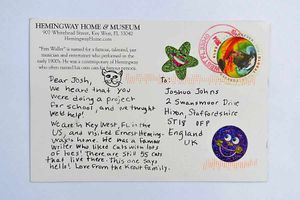 HEMINGWAY HOME & MUSEUM
907 Whitehead Street, Key West, FL 33040
HemingwayHome.com
"Fats Waller" is named for a famous, talented, jazz
musician and entertainer who performed in the
early 1900s. He was a contemporary of Hemingway
who often named his cats for famous persons.
Dear Josh,
We heard that you
were doing a project
for school, and we thought
we'd help!
We are in Key West, FL in the
US, and visited Ernest Heming-
way's home. He was a famous
writer who liked cats with lots
of toes! There are still 55 cats
that live there. This one says
hello! Love from the Krout family.
To:
Joshua Johns
2 Swansmoor Drive
Hixon, Staffordshire
ST18 0FP
England
UK